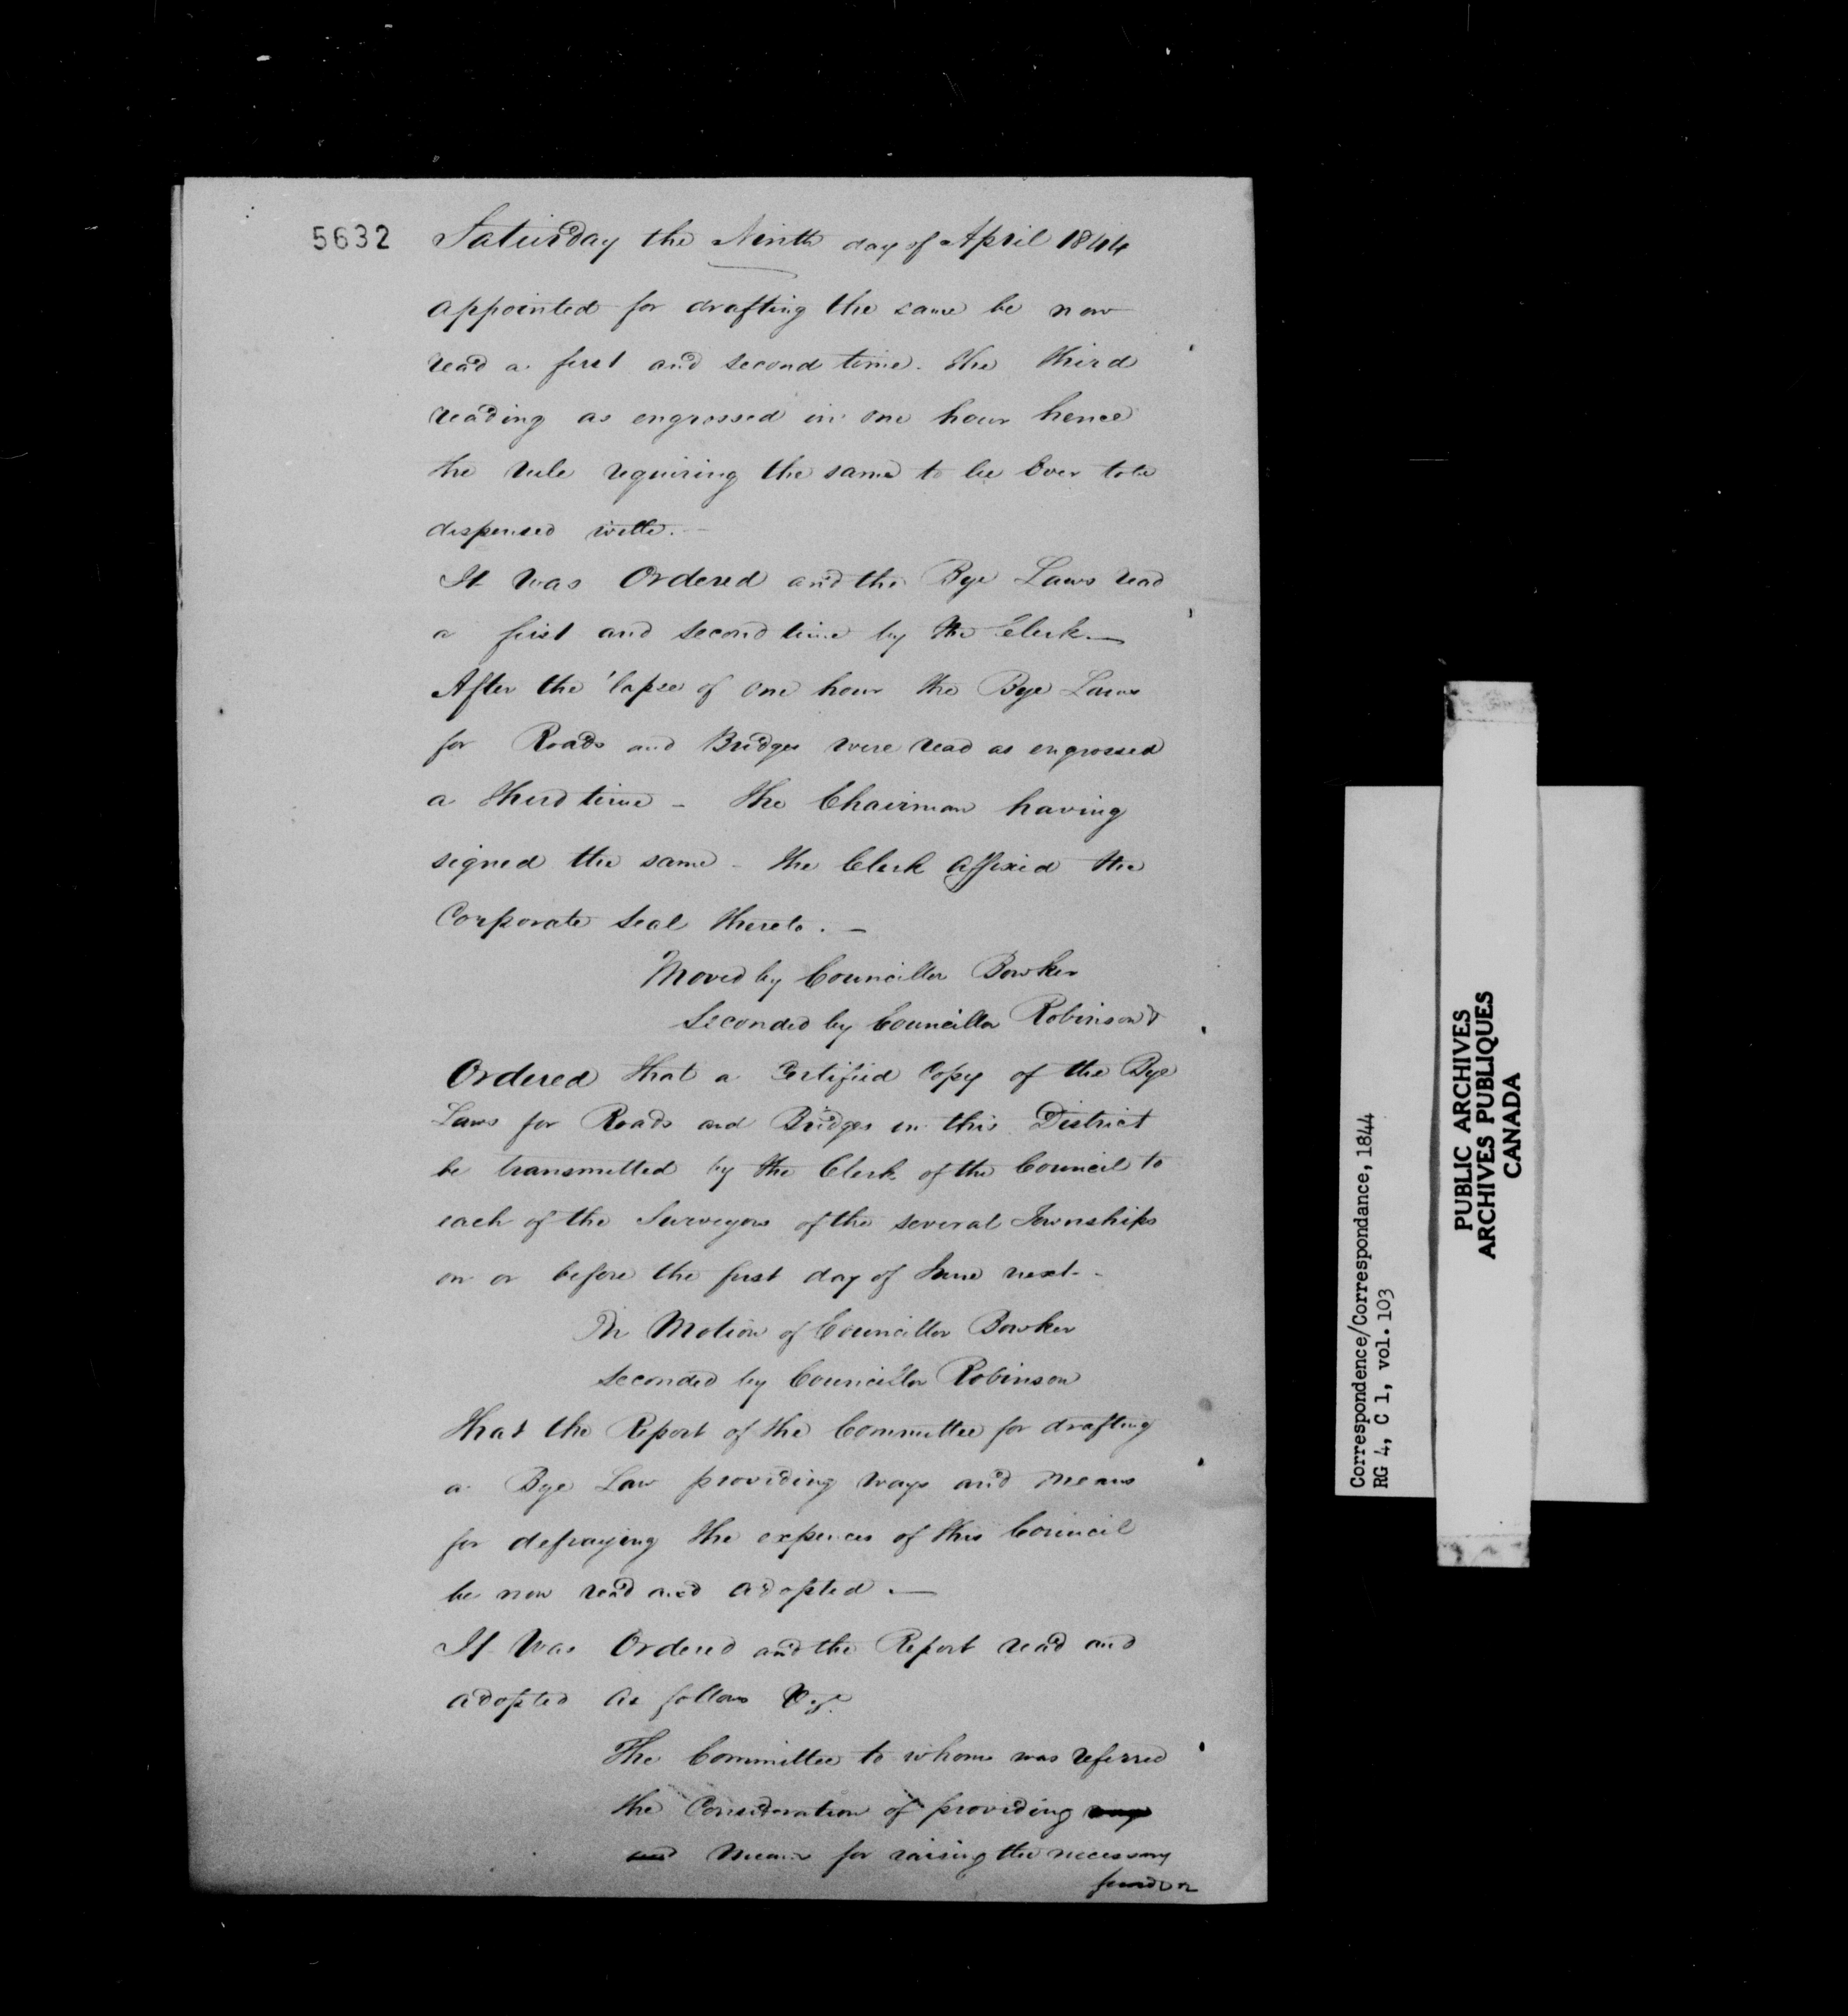 5632 Saturday the Ninth day of April 1844
appointed for drafting the same be now
read a first and second time. the third
reading as engrossed in one hour hence
the rule requiring the same to lie over to be
dispensed with. —
It was Ordered and the Bye Laws read
a first and second time by the Clerk. —
After the 'lapse of one hour the Bye Laws
for Roads and Bridges were read as engrossed
a third time - The Chairman having
signed the same - the Clerk Affixed the
Corporate Seal thereto. —
Moved by Councillor Bowker
Seconded by Councillor Robinson &
Ordered that a Certified Copy of the Bye
Laws for Roads and Bridges in this District
be transmitted by the Clerk of the Council to
each of the Surveyors of the several Townships
on or before the first day of June next -
On Motion of Councillor Bowker
Seconded by Councillor Robinson
That the Report of the Committee for drafting
a Bye Law providing ways and means
for defraying the expences of this Council
be now read and adopted. —
It Was Ordered and the Report read and
adopted as follows Viz.
The Committee to whome was referred
the Consideration of providing ways
and Means for raising the necessary
funds
Correspondence/Correspondance, 1844
RG 4, C 1, vol. 103
PUBLIC ARCHIVES
ARCHIVES PUBLIQUES
CANADA